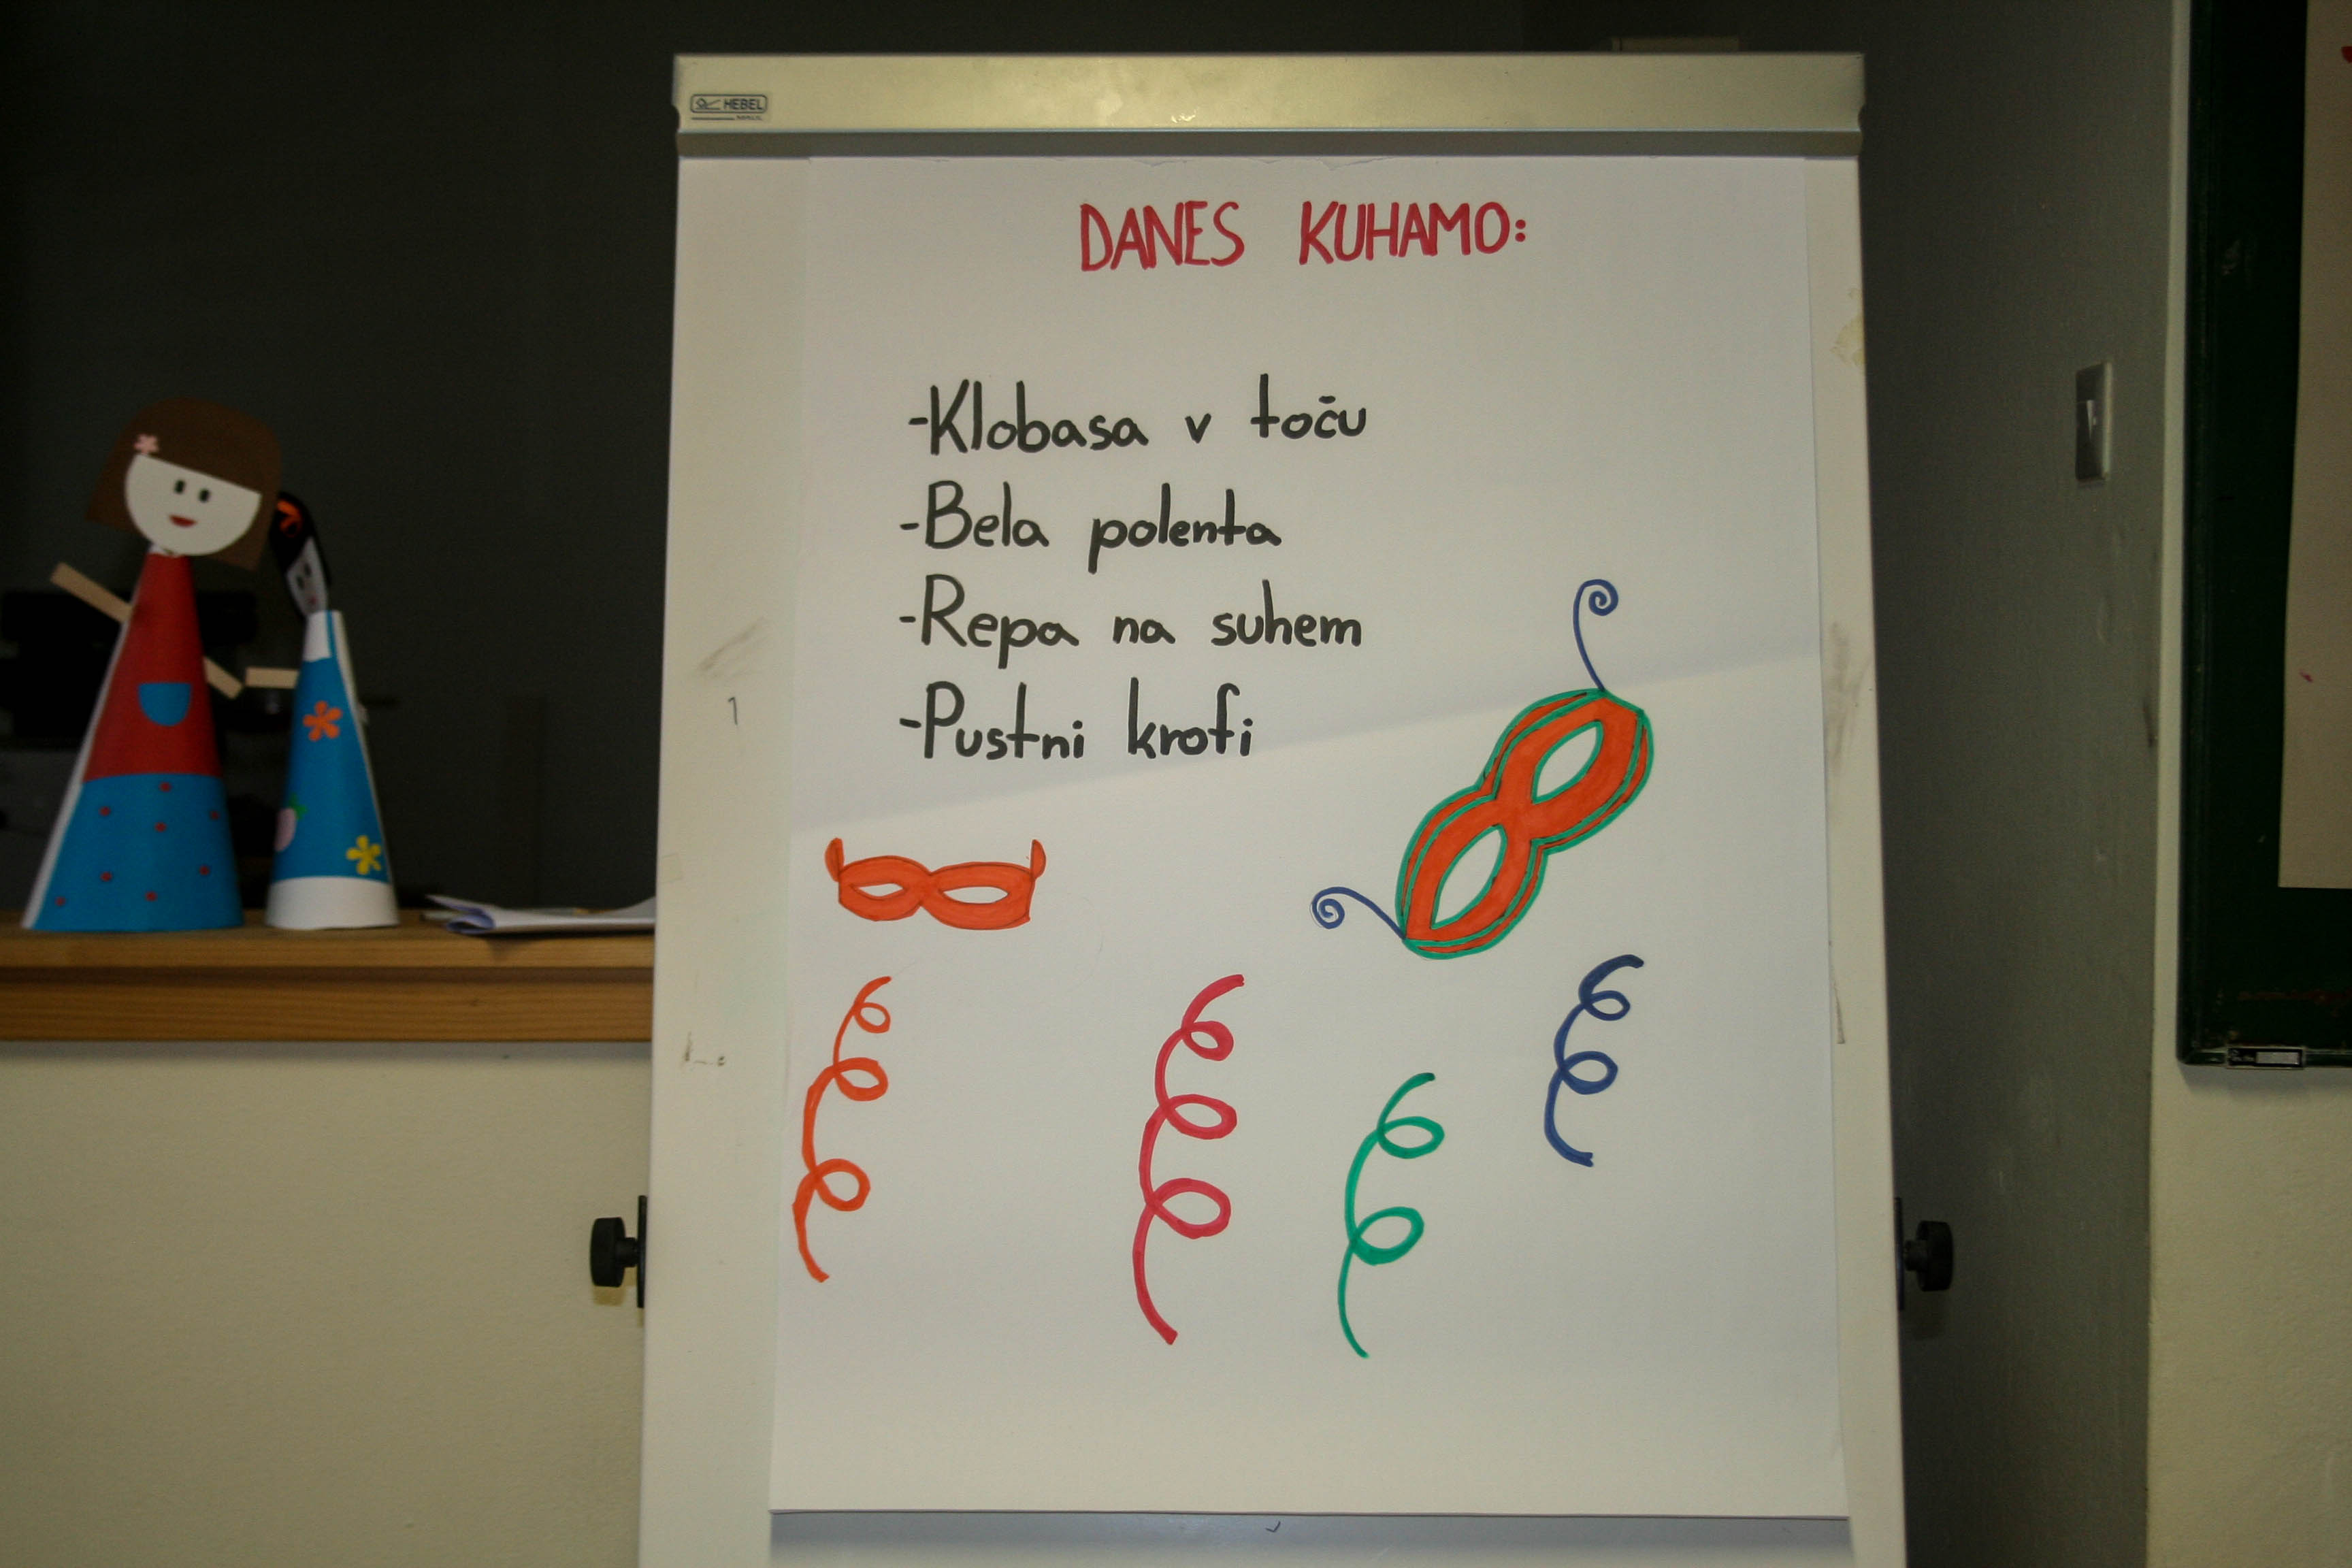 HEBEL
DANES KUHAMO:
-Klobasa v toču
-Bela polenta
-Repa na suhem
-Pustni krofi